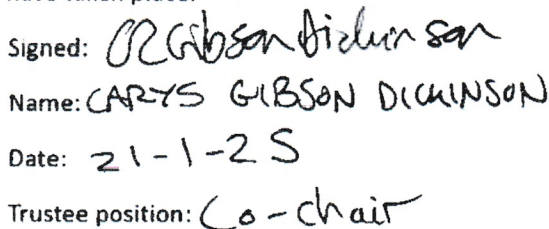 have taken place.
Signed: CR Gibson Dickinson
Name: CARYS GIBSON DICKINSON
Date: 21-1-25
Trustee position: Co-chair